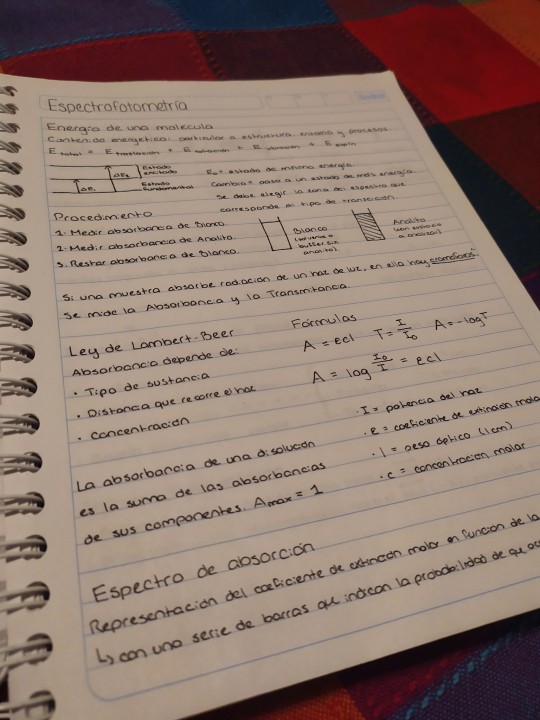 Espectrofotometría
Energía de una molécula
Contenido energético: particular a estructura, entorno y procesos
E total = E traslación + E rotación + E vibración + E espín
ΔE₁
ΔE₂
Estado excitado
Estado fundamental
E₀ = estado de mínima energía.
Cambia = pasa a un estado de más energía.
Se debe elegir la zona del espectro que
corresponde al tipo de transición.
Procedimiento
1. Medir absorbancia de Blanco
2. Medir absorbancia de Analito.
3. Restar absorbancia de Blanco.
Blanco
buffer sin
analito)
Analito
a analizar)
Si una muestra absorbe radiación de un haz de luz, en ella hay cromóforos.
Se mide la Absorbancia y la Transmitancia.
Ley de Lambert-Beer
Absorbancia depende de:
· Tipo de sustancia
· Distancia que recorre el haz
· Concentración
Fórmulas
A = ecl T = I/I₀ A = -logT
A = log I₀/I = ecl
· I = potencia del haz
· e = coeficiente de extinción mola
· l = paso óptico (1cm)
· c = concentración molar
La absorbancia de una disolución
es la suma de las absorbancias
de sus componentes. Amax = 1
Espectro de absorción
Representación del coeficiente de extinción molar en función de la
↳ con una serie de barras que indican la probabilidad de que oc